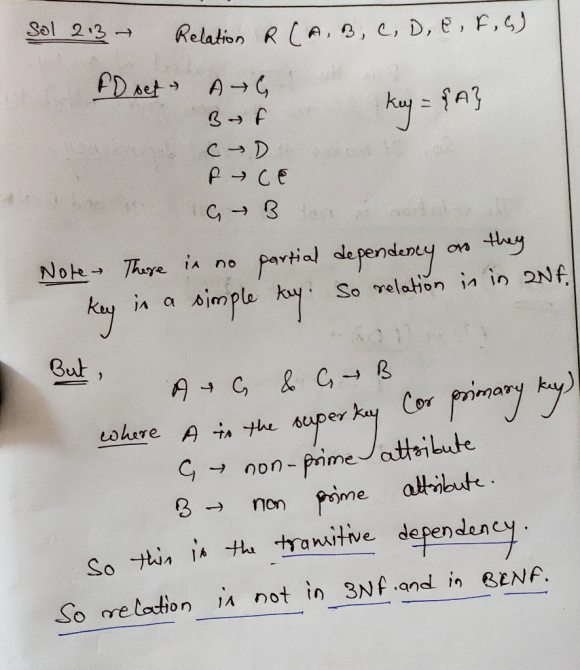 Sol 2.3 → Relation R (A, B, C, D, E, F, G)
FD set → A → G
key = {A}
B → F
C → D
F → CE
G → B
Note → There is no partial dependency as they
key is a simple key. So relation is in 2NF.
But,
A → G & G → B
where A is the super key (or primary key)
G → non-prime attribute
B → non prime attribute.
So this is the transitive dependency.
So relation is not in 3NF. and in BCNF.